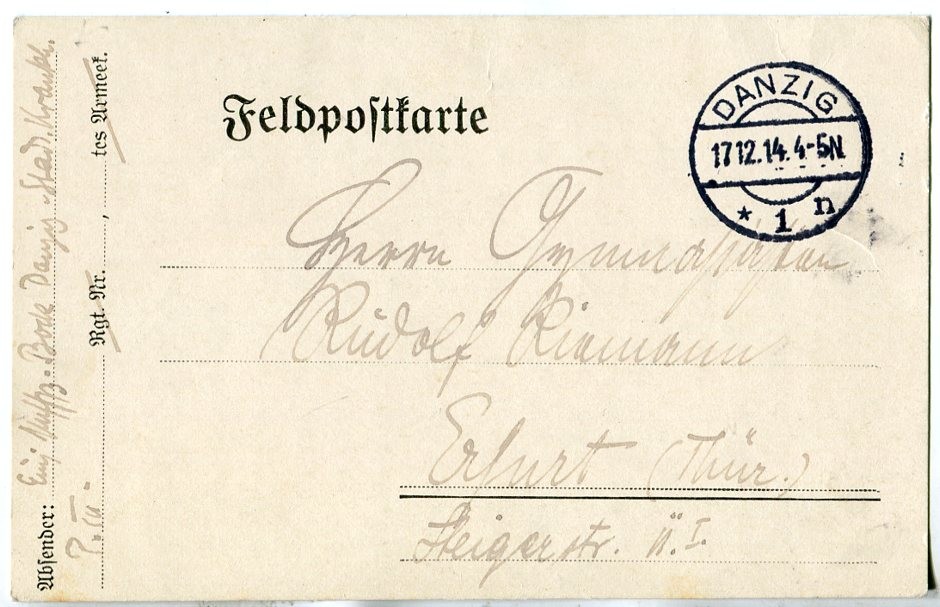 Feldpostkarte
DANZIG
17 12.14. 4-5N.
* 1 n
Herrn Gymnasiasten
Rudolf Riemann
Erfurt (Thür.)
Steigerstr.
Absender: Danzig Stadt.
Rgt. Nr. , tes Armeek.